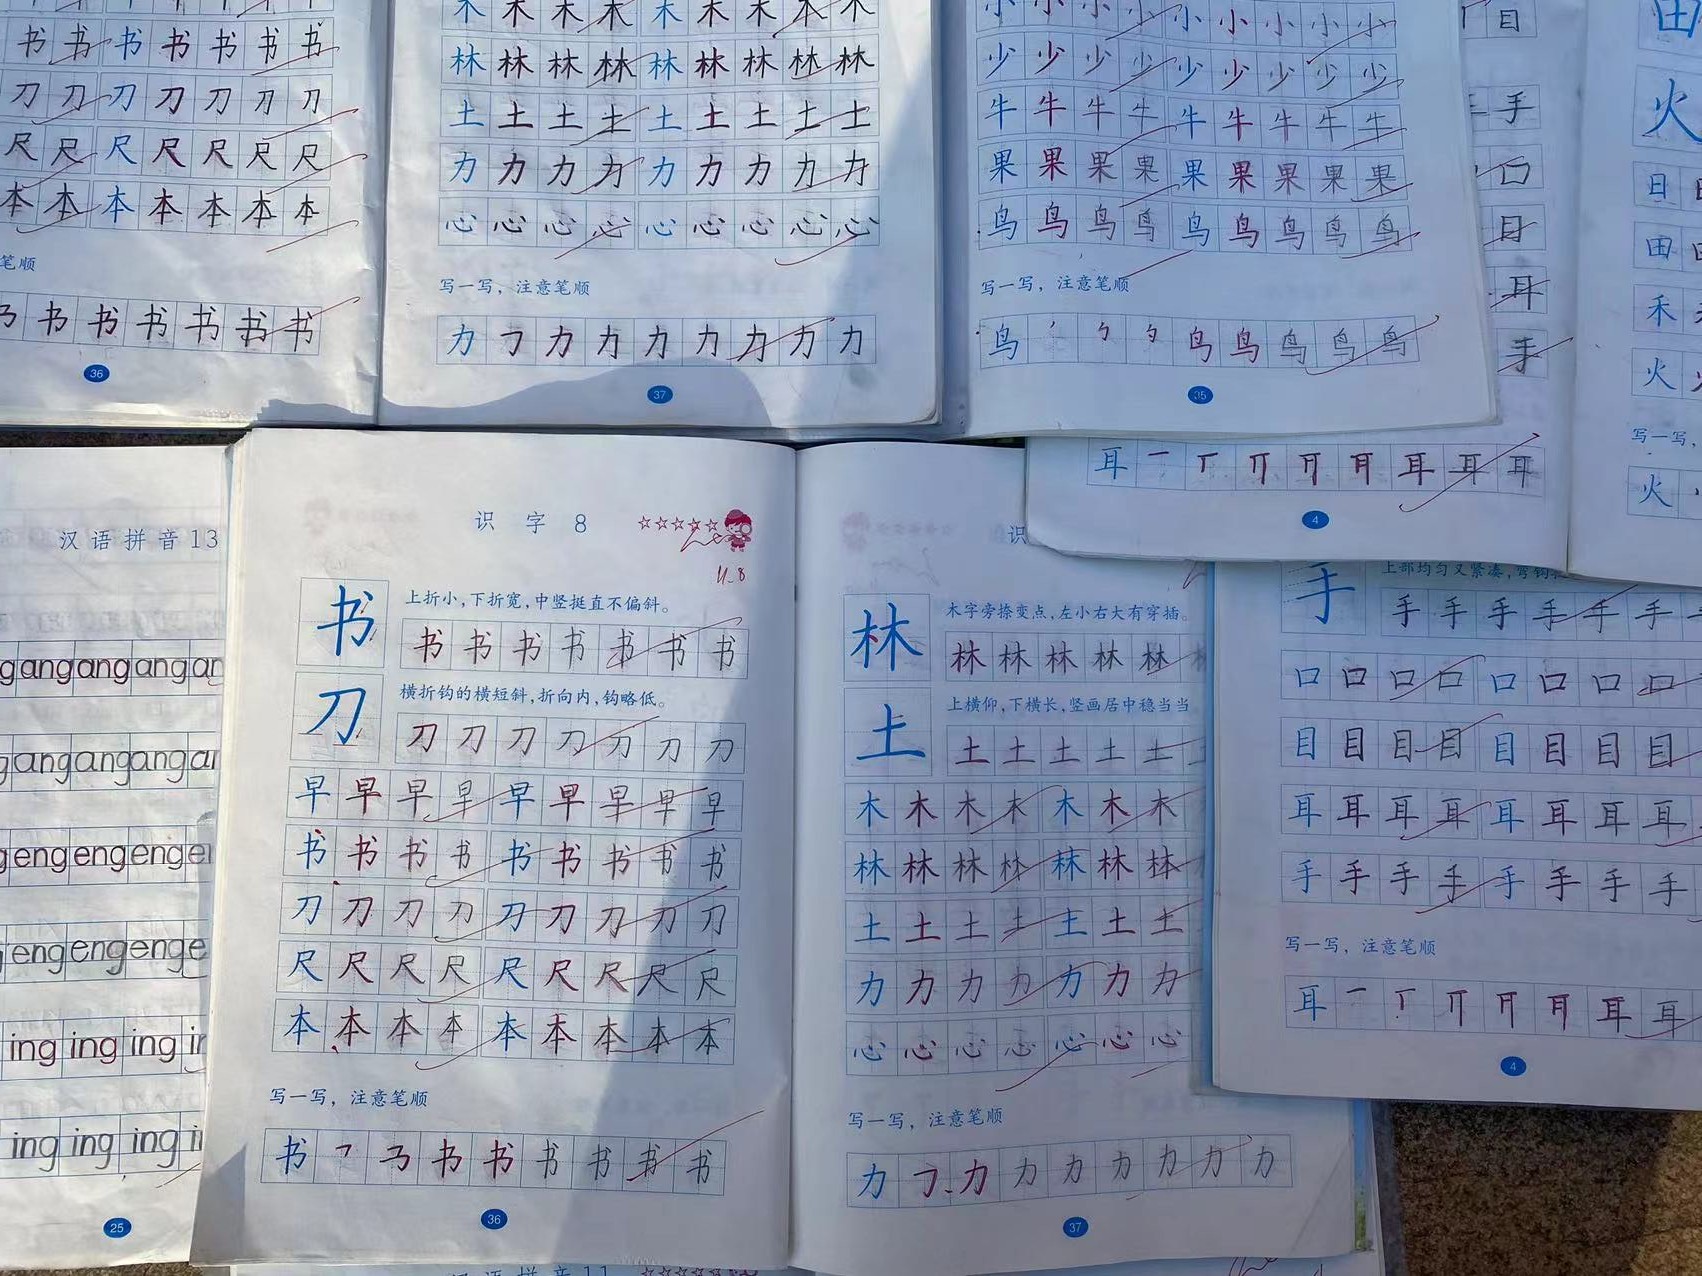 书 书 书 书 书 书 书
刀 刀 刀 刀 刀 刀 刀
尺 尺 尺 尺 尺 尺 尺
本 本 本 本 本 本 本
笔顺
书 书 书 书 书 书
36
木 木 木 木 木 木 木 本 木
林 林 林 林 林 林 林 林 林
土 土 土 土 土 土 土 土 土
力 力 力 力 力 力 力 力 力
心 心 心 心 心 心 心 心 心
写一写，注意笔顺
力 力 力 力 力 力 力 力
37
小 小 小 小 小 小 小 小 小
少 少 少 少 少 少 少 少 少
牛 牛 牛 牛 牛 牛 牛 牛 牛
果 果 果 果 果 果 果 果 果
鸟 鸟 鸟 鸟 鸟 鸟 鸟 鸟 鸟
写一写，注意笔顺
鸟 鸟 鸟 鸟 鸟 鸟
35
目
手
口
目
耳
手
耳 一 丅 耳 耳 耳
4
田
火
日
田
禾
火
写一写，
火
汉语拼音13
gangangangan
gangangang
gengengenge
engengenge
ing ing ing
ing ing ing
25
识字8
11.8
书
上折小，下折宽，中竖挺直不偏斜。
书 书 书 书 书 书 书
刀
横折钩的横短斜，折向内，钩略低。
刀 刀 刀 刀 刀 刀 刀
早 早 早 早 早 早 早 早 早
书 书 书 书 书 书 书 书 书
刀 刀 刀 刀 刀 刀 刀 刀 刀
尺 尺 尺 尺 尺 尺 尺 尺 尺
本 本 本 本 本 本 本 本 本
写一写，注意笔顺
书 书 书 书 书 书 书
36
识
林
木字旁捺变点，左小右大有穿插。
林 林 林 林 林
土
上横仰，下横长，竖画居中稳当当
土 土 土 土 土
木 木 木 木 木 木 木
林 林 林 林 林 林 林
土 土 土 土 土 土 土
力 力 力 力 力 力 力
心 心 心 心 心 心 心
写一写，注意笔顺
力 力 力 力 力 力 力 力
37
手
上部均匀又紧凑，弯钩
手 手 手 手 手 手
口 口 口 口 口 口 口 口
目 目 目 目 目 目 目 目
耳 耳 耳 耳 耳 耳 耳 耳
手 手 手 手 手 手 手 手
写一写，注意笔顺
耳 一 丅 耳 耳
4
汉语拼音11